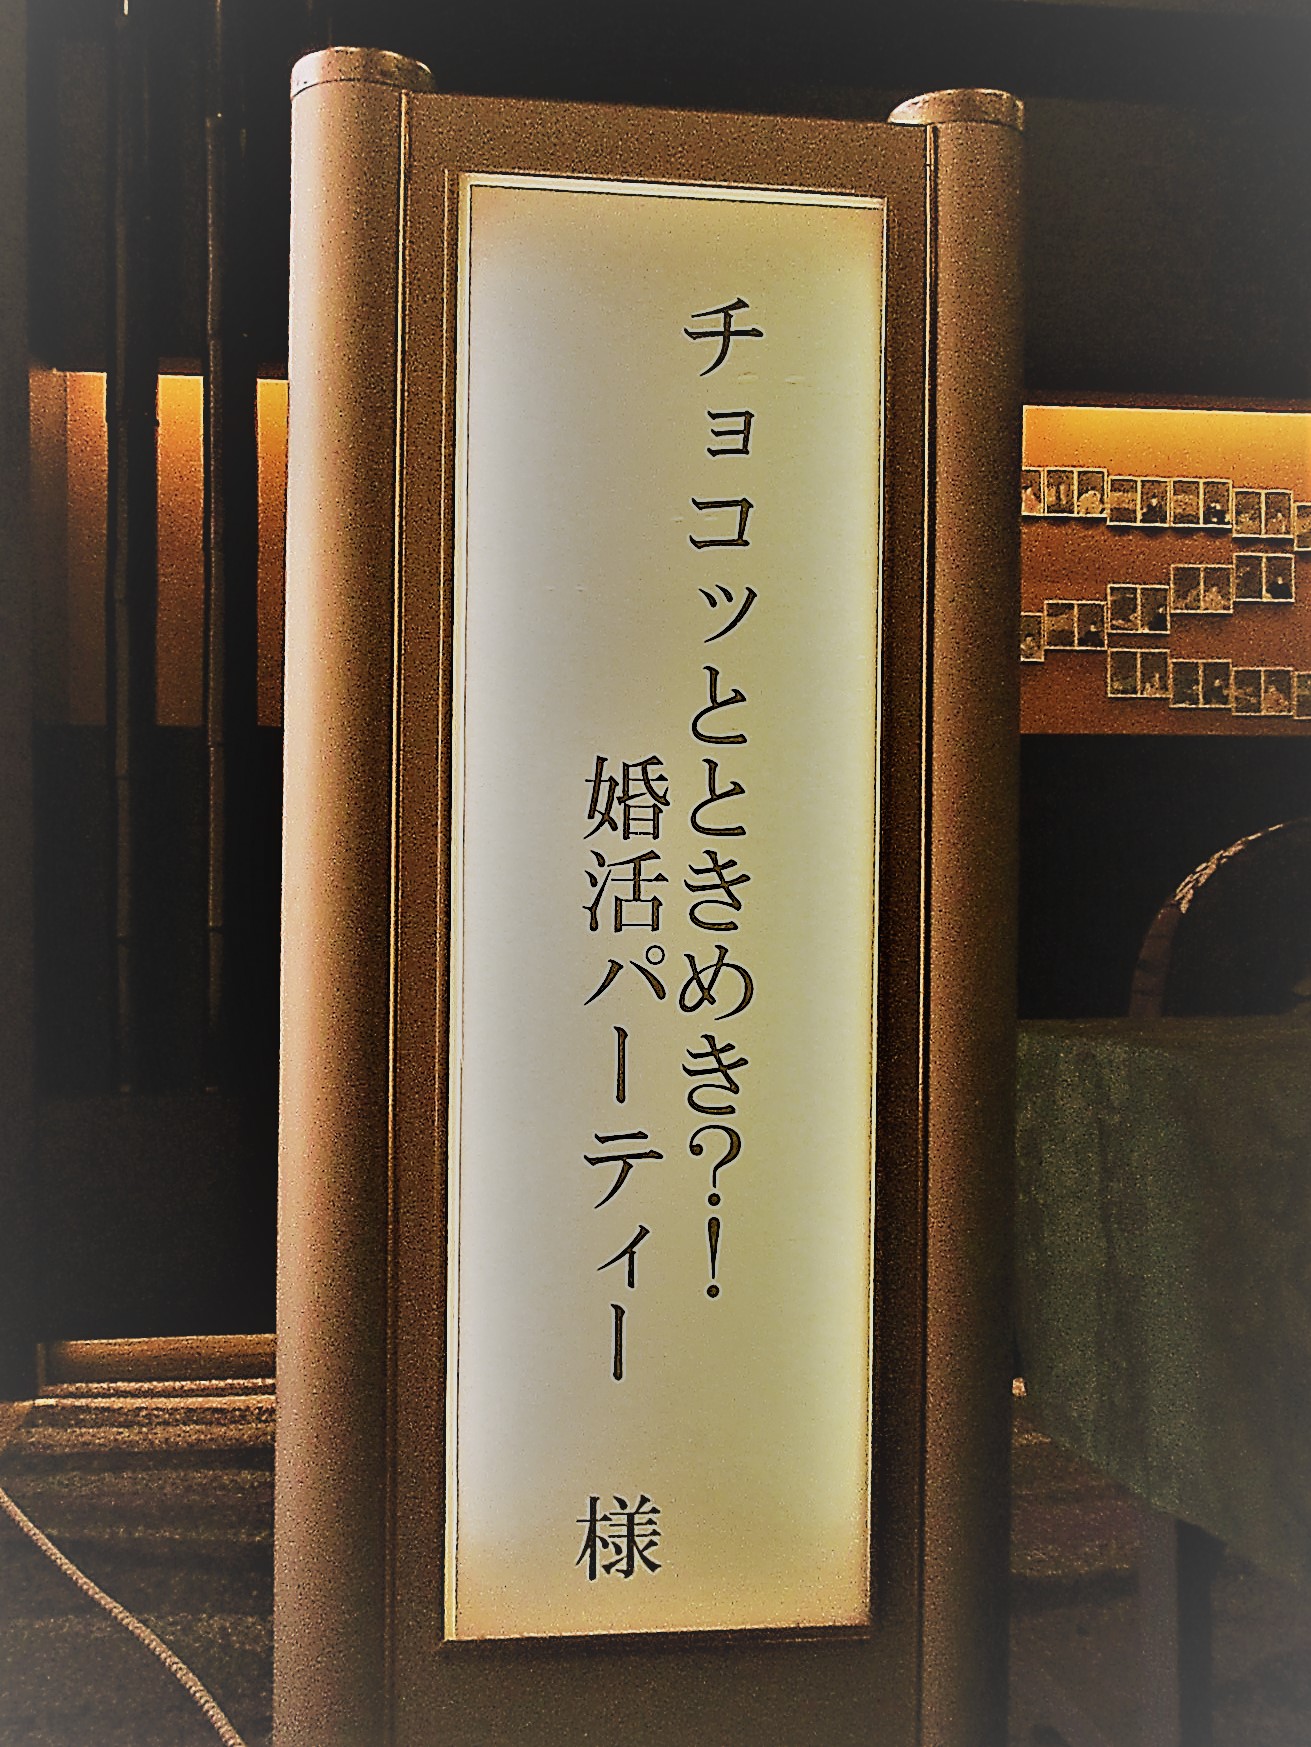 チョコッとときめき?!
婚活パーティー 様